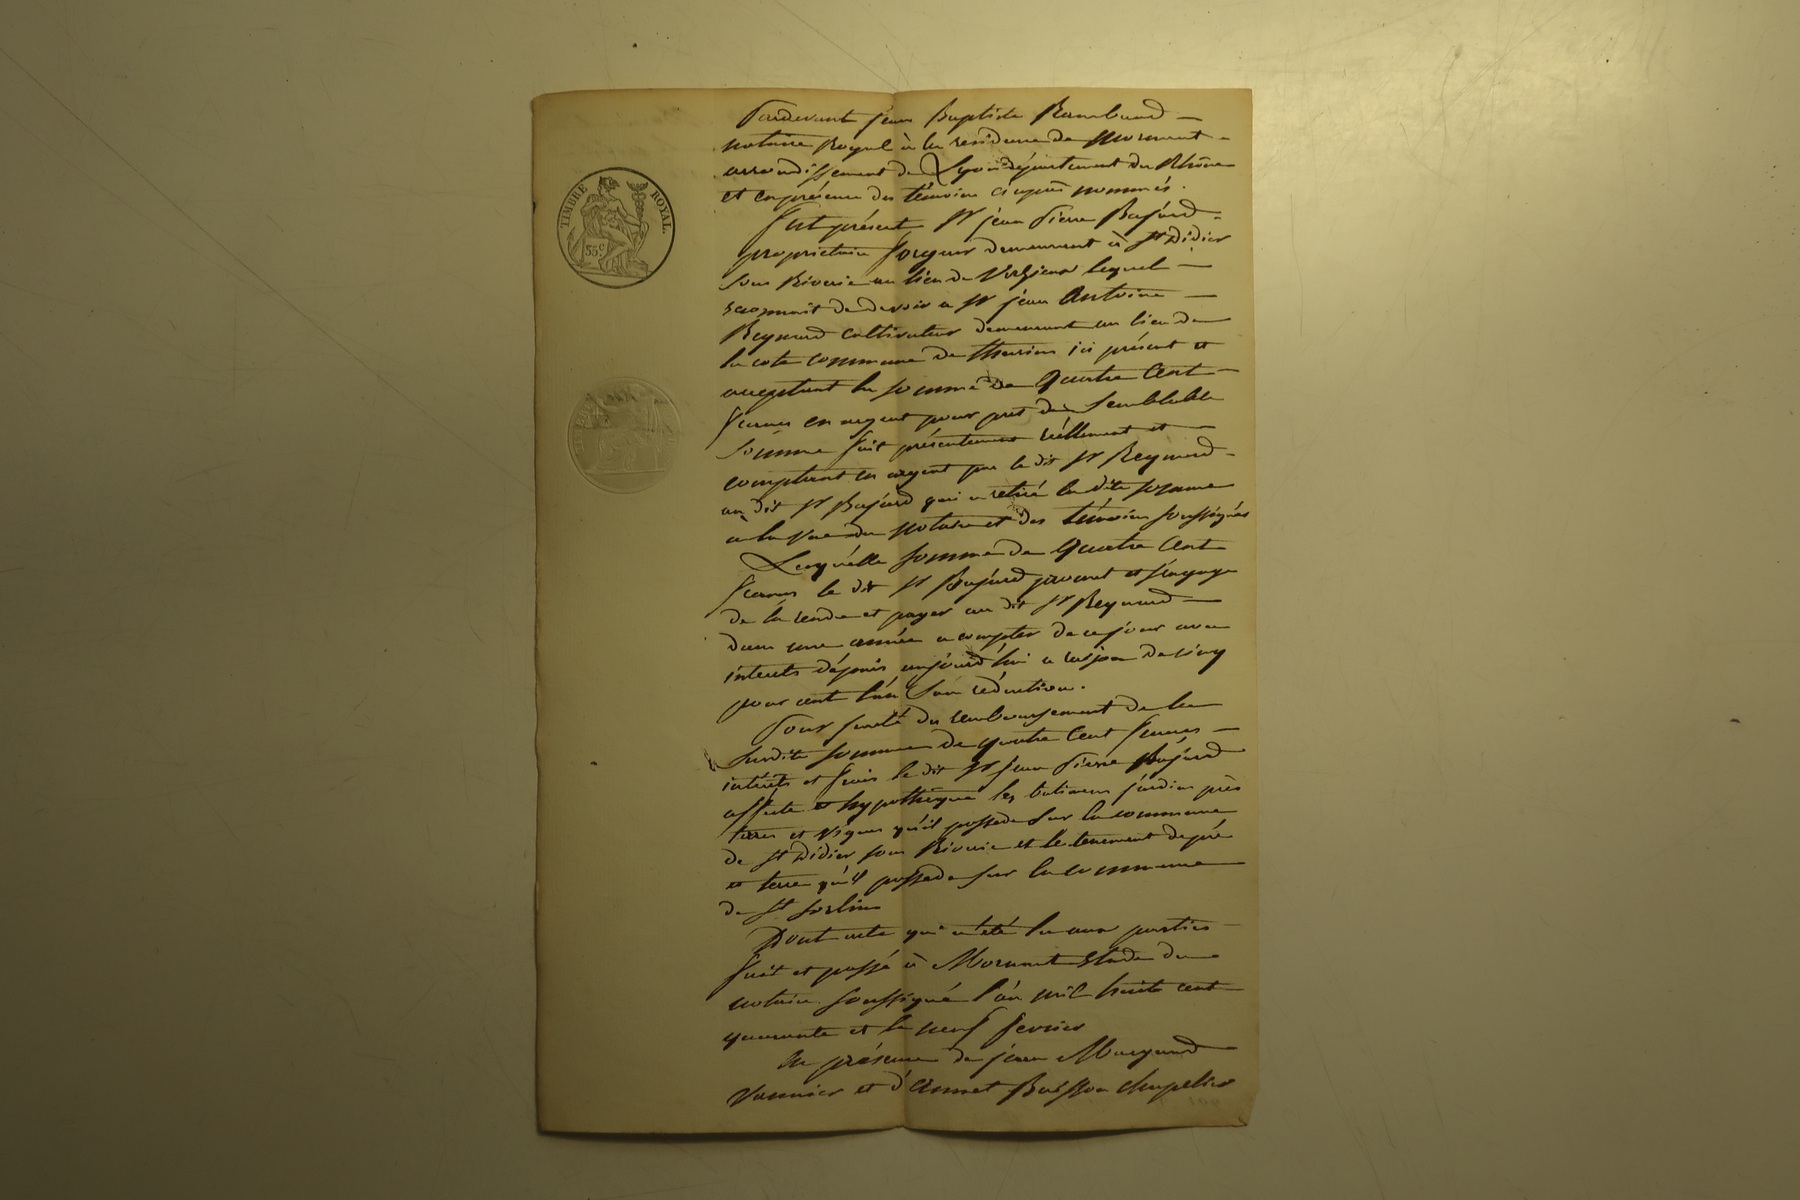 TIMBRE ROYAL.
35c
Pardevant jean Baptiste Rambaud
notaire Royal à la residence de Mornant
arrondissement de Lyon département du Rhône
et en présence des témoins ci après nommés.
Fut présent Sr jean Pierre Bajard
propriétaire demeurant à St Didier
sous Riverie au lieu de lequel
reconnait de devoir a Sr jean Antoine
Reynard cultivateur demeurant au lieu de
la cote commune de thurins ici présent et
acceptant la somme de Quatre Cent
francs en argent pour prêt de semblable
somme fait présentement réellement et
comptant en argent par le dit Sr Reynard
au dit Sr Bajard qui a retiré la dite somme
a la vue du notaire et des témoins soussignés
Laquélle somme de Quatre Cent
francs le dit Sr Bajard promet et s'engage
de la rendre et payer au dit Sr Reynard
dans une année a compter de ce jour avec
interets dépuis aujourd'hui a raison de cinq
pour cent l'an sans réduction.
Pour sureté du remboursement de la
susdite somme de quatre Cent francs
intérêts et frais le dit Sr jean Pierre Bajard
affecte et hypothéque les batimens jardin près
terres et vignes qu'il possede sur la commune
de St Didier sous Riverie et le tenement de pré
et terre qu'il possede sur la commune
de St Sorlin
Dont acte qui a été lu aux parties
fait et passé à Mornant Etude du
notaire soussigné l'an mil huit cent
quarante et le neuf fevrier
En présence de jean
et d'Annet Buisson chapelier